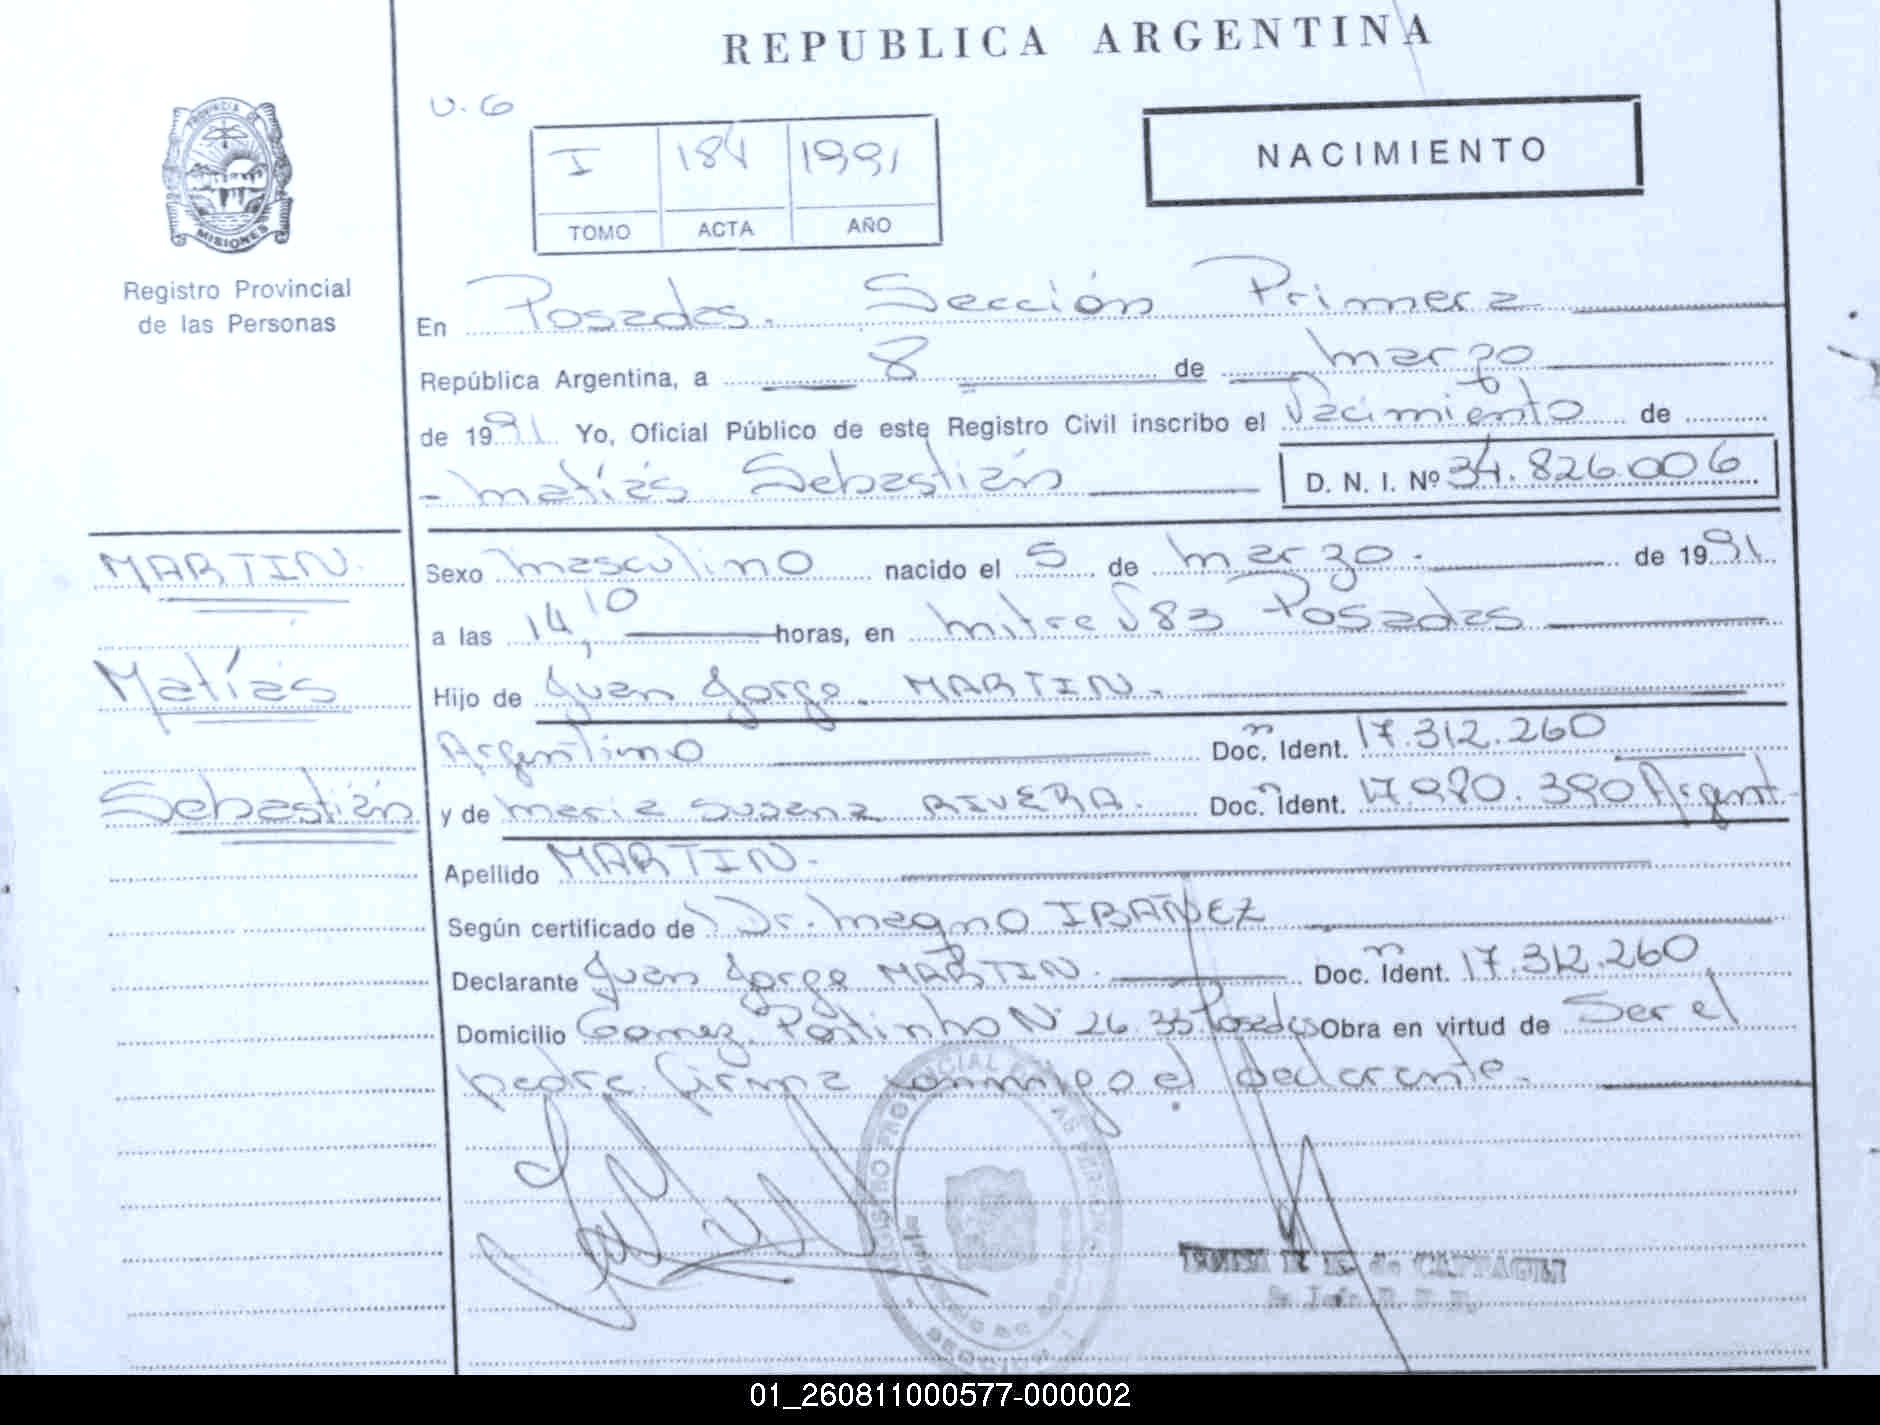 REPUBLICA ARGENTINA
U. G
I 184 1991
TOMO ACTA AÑO
NACIMIENTO
PROVINCIA DE
MISIONES
Registro Provincial
de las Personas
En Posadas. Sección Primera
República Argentina, a 8 de marzo
de 1991 Yo, Oficial Público de este Registro Civil inscribo el Nacimiento de
- Matías Sebastián D. N. I. Nº 34.826.006
MARTIN.
Matías
Sebastián
Sexo masculino nacido el 5 de marzo. de 1991.
a las 14,10 horas, en Mitre 583 Posadas
Hijo de Juan Jorge. MARTIN.
Argentino Doc. n Ident. 17.312.260
y de Maria Susana RIVERA. Doc. n Ident. 17.980.390 Argent.
Apellido MARTIN.
Según certificado de Dr. Magno IBAÑEZ
Declarante Juan Jorge MARTIN. Doc. n Ident. 17.312.260
Domicilio Gomez Portinho Nº 26.33 Posadas Obra en virtud de Ser el
padre. Firma conmigo el declarante.
de CATTAGLI
01_260811000577-000002